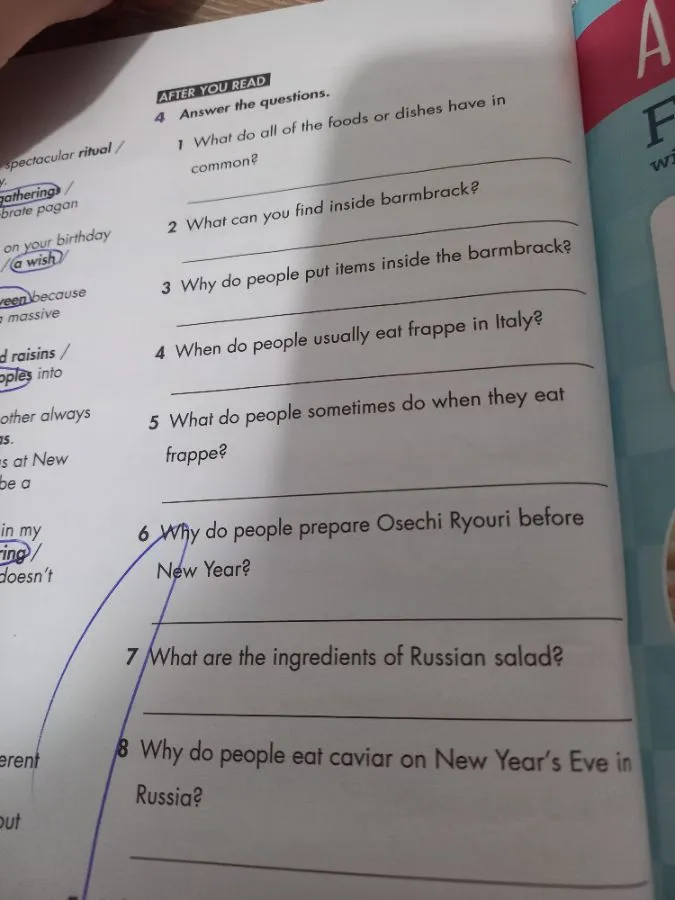 AFTER YOU READ
4 Answer the questions.
1 What do all of the foods or dishes have in
common?
2 What can you find inside barmbrack?
3 Why do people put items inside the barmbrack?
4 When do people usually eat frappe in Italy?
5 What do people sometimes do when they eat
frappe?
6 Why do people prepare Osechi Ryouri before
New Year?
7 What are the ingredients of Russian salad?
8 Why do people eat caviar on New Year's Eve in
Russia?
spectacular ritual /
gatherings /
brate pagan
on your birthday
/ a wish /
veen because
massive
d raisins /
pples into
other always
as.
s at New
be a
in my
ring /
doesn't
erent
out
A
F
wi